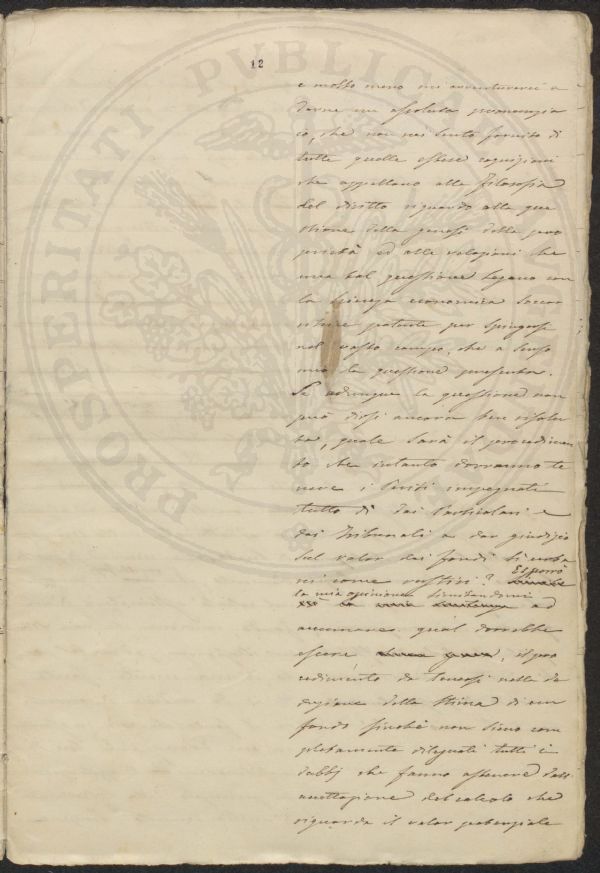 12
e molto meno mi avventurerei a
darne una assoluta pronunzia
, che non mi sento fornito di
tutte quelle estese cognizioni
che appellano alla filosofia
del diritto riguardo alla que
stione della genesi della pro
prietà ed alle relazioni che
una tal questione legano con
la scienza economica
potente per spingersi
nel vasto campo, che a senso
mio la questione presenta.
Se adunque la questione non
può dirsi ancora ben risolu
ta, quale sarà il procedimen
to che intanto dovranno te
nere i Periti impegnati
tutto dì dai Particolari e
dai Tribunali a dar giudizio
sul valor dei fondi sì urba
ni come rustici? Esporrò
la mia opinione limitandomi ad
accennare qual dovrebbe
essere, il pro
cedimento da tenersi nella de
duzione della Stima di un
fondo finché non sieno com
pletamente dileguati tutti i
dubbj che fanno astenere dall'
accettazione del calcolo che
riguarda il valor potenziale
PROSPERITATI PVBLICAE